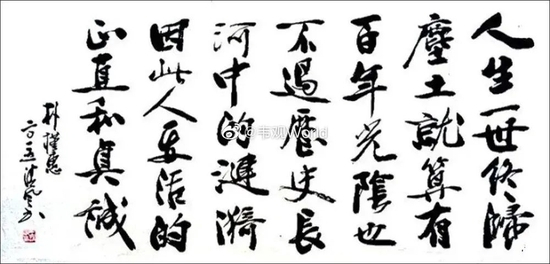 人生一世终歸
塵土就算有
百年光陰也
不過歷史長
河中的漣漪
因此人要活的
正直和真誠
朴槿惠
二〇一五
World